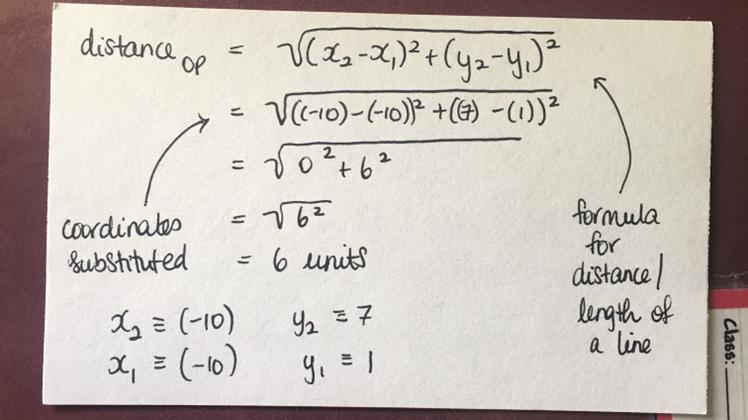 distance OP = √(x₂-x₁)²+(y₂-y₁)²
= √((-10)-(-10))² +((7) -(1))²
= √0²+6²
coordinates substituted
= √6²
= 6 units
formula
for
distance/
length of
a line
x₂ ≡ (-10) y₂ ≡ 7
x₁ ≡ (-10) y₁ ≡ 1
Class: